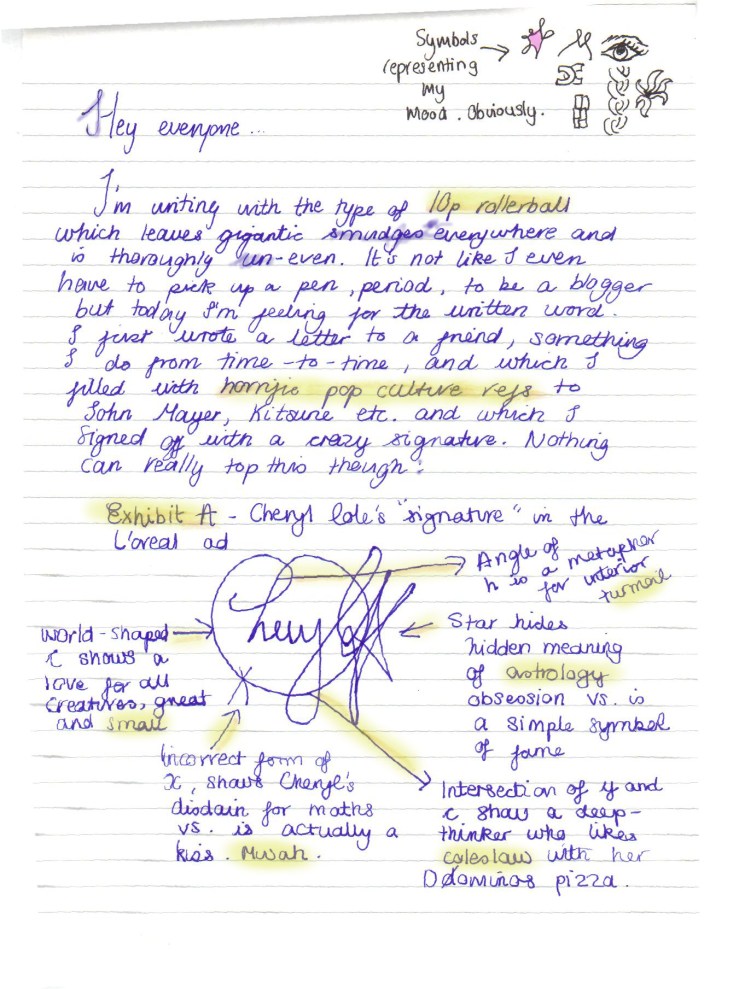 Symbols
representing
my
mood. Obviously.
Hey everyone...
I'm writing with the type of 10p rollerball
which leaves gigantic smudges everywhere and
is thoroughly un-even. It's not like I even
have to pick up a pen, period, to be a blogger
but today I'm feeling for the written word.
I just wrote a letter to a friend, something
I do from time-to-time, and which I
filled with horrific pop culture refs to
John Mayer, Kitsune etc. and which I
signed off with a crazy signature. Nothing
can really top this though:
Exhibit A - Cheryl Cole's "signature" in the
L'oreal ad
Angle of
h is a metaphor
for interior
turmoil
Cheryl
World-shaped
C shows a
love for all
creatures, great
and small
Star hides
hidden meaning
of astrology
obsession vs. is
a simple symbol
of fame
Incorrect form of
x, shows Cheryl's
disdain for maths
vs. is actually a
kiss. Mwah.
Intersection of y and
c show a deep-
thinker who likes
coleslaw with her
Ddominos pizza.